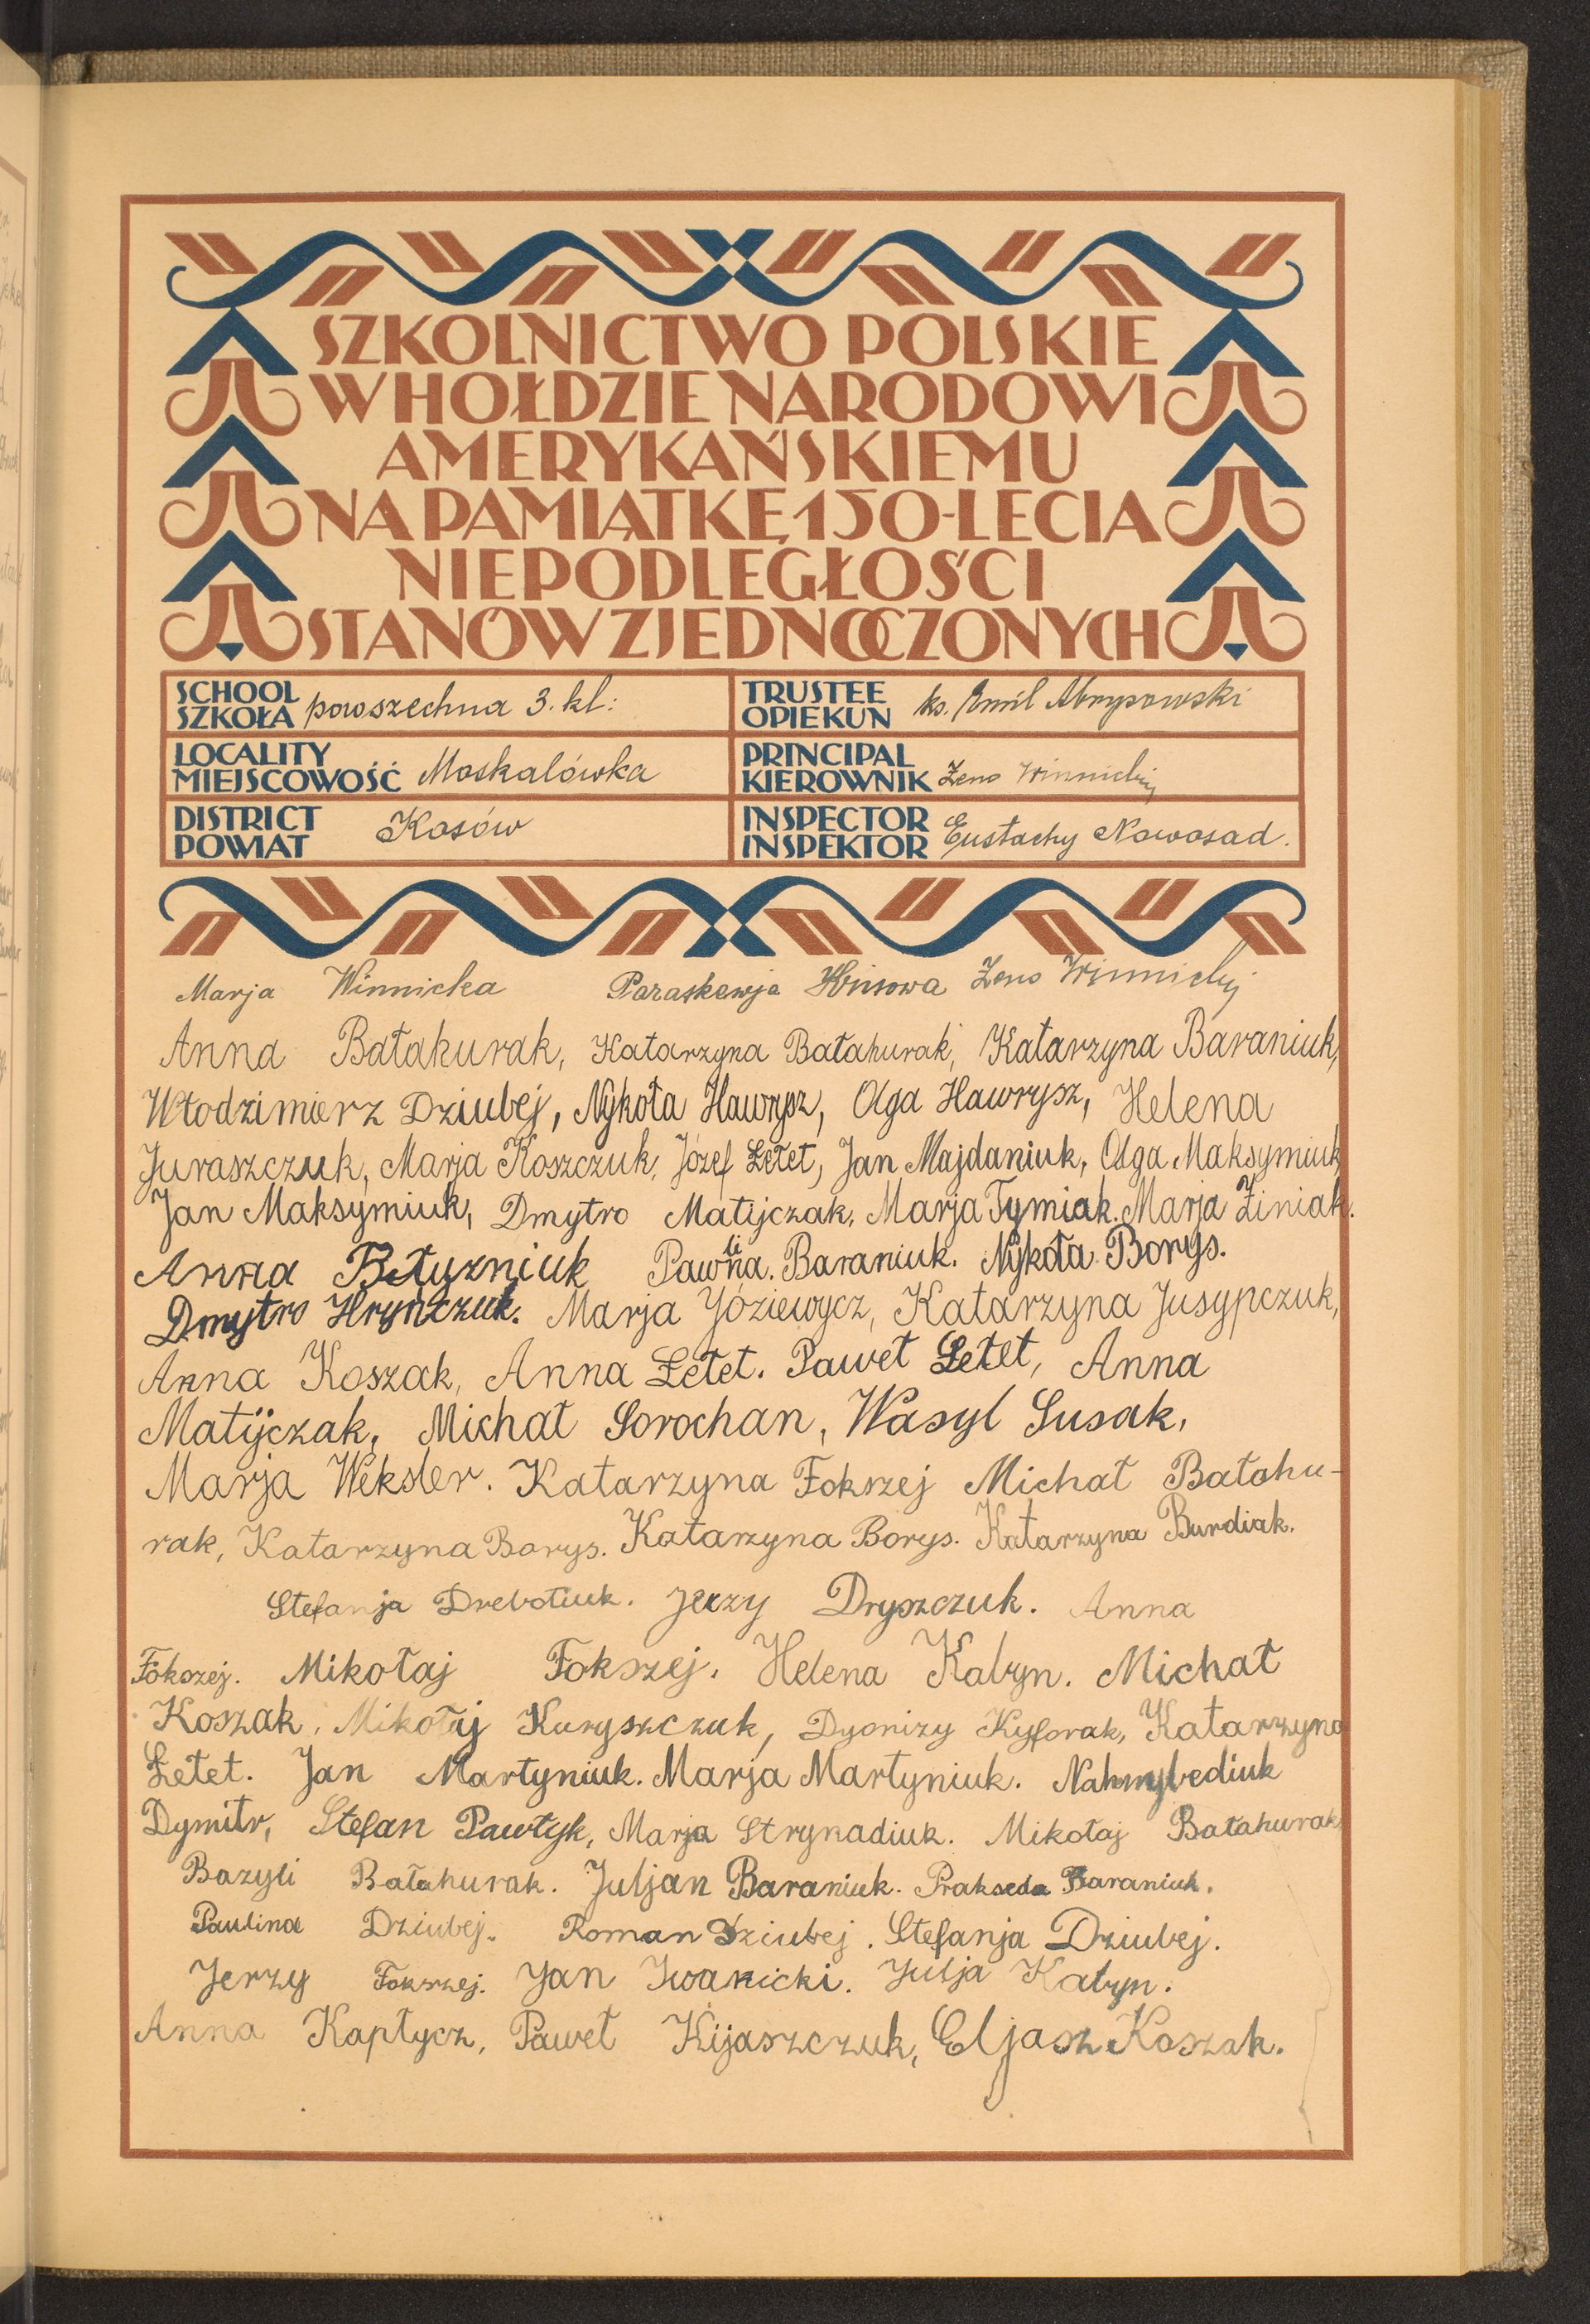 SZKOLNICTWO POLSKIE
W HOŁDZIE NARODOWI
AMERYKAŃSKIEMU
NA PAMIĄTKĘ 150-LECIA
NIEPODLEGŁOŚCI
STANÓW ZJEDNOCZONYCH
SCHOOL
SZKOŁA powszechna 3. kl:
TRUSTEE
OPIEKUN ks. Emil
LOCALITY
MIEJSCOWOŚĆ Moskalówka
PRINCIPAL
KIEROWNIK Zeno Winnickij
DISTRICT
POWIAT Kosów
INSPECTOR
INSPEKTOR Eustachy Nowosad.
Marja Winnicka Paraskewja Zeno Winnickij
Anna Bałahurak, Katarzyna Bałahurak, Katarzyna Baraniuk,
Włodzimierz Dziubej, Nykoła Hawrysz, Olga Hawrysz, Helena
Juraszczuk, Marja Koszczuk, Józef Łetet, Jan Majdaniuk, Olga Maksymiuk
Jan Maksymiuk, Dmytro Matijczak, Marja Tymiak. Marja Ziniak.
Anna Pawlina. Baraniuk. Nykoła Borys.
Dmytro Hrynczuk. Marja Józiewycz, Katarzyna Jusypczuk,
Anna Koszak, Anna Łetet. Paweł Łetet, Anna
Matijczak, Michał Sorochan, Wasyl Susak,
Marja Weksler. Katarzyna Fokszej Michał Bałahu-
rak, Katarzyna Borys. Katarzyna Borys. Katarzyna Burdiak.
Stefanja Drebotiuk. Jerzy Dryszczuk. Anna
Fokszej. Mikołaj Fokszej. Helena Kabyn. Michał
Koszak, Mikołaj Kuryszczuk, Dyonizy Kyforak, Katarzyna
Łetet. Jan Martyniuk. Marja Martyniuk. Nahmybediuk
Dymitr, Stefan Pawłyk, Marja Strynadiuk. Mikołaj Bałahurak
Bazyli Bałahurak. Juljan Baraniuk. Prakseda Baraniuk.
Paulina Dziubej. Roman Dziubej. Stefanja Dziubej.
Jerzy Fokszej. Jan Iwanicki. Julja Kabyn.
Anna Kapłycz, Paweł Kijaszczuk, Eljasz Koszak.